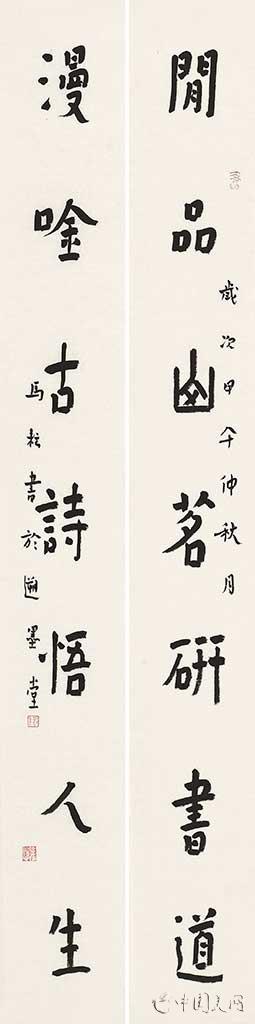 閒品幽茗研書道
歲次甲午仲秋月
漫唫古詩悟人生
馬書於墨堂
中国美网